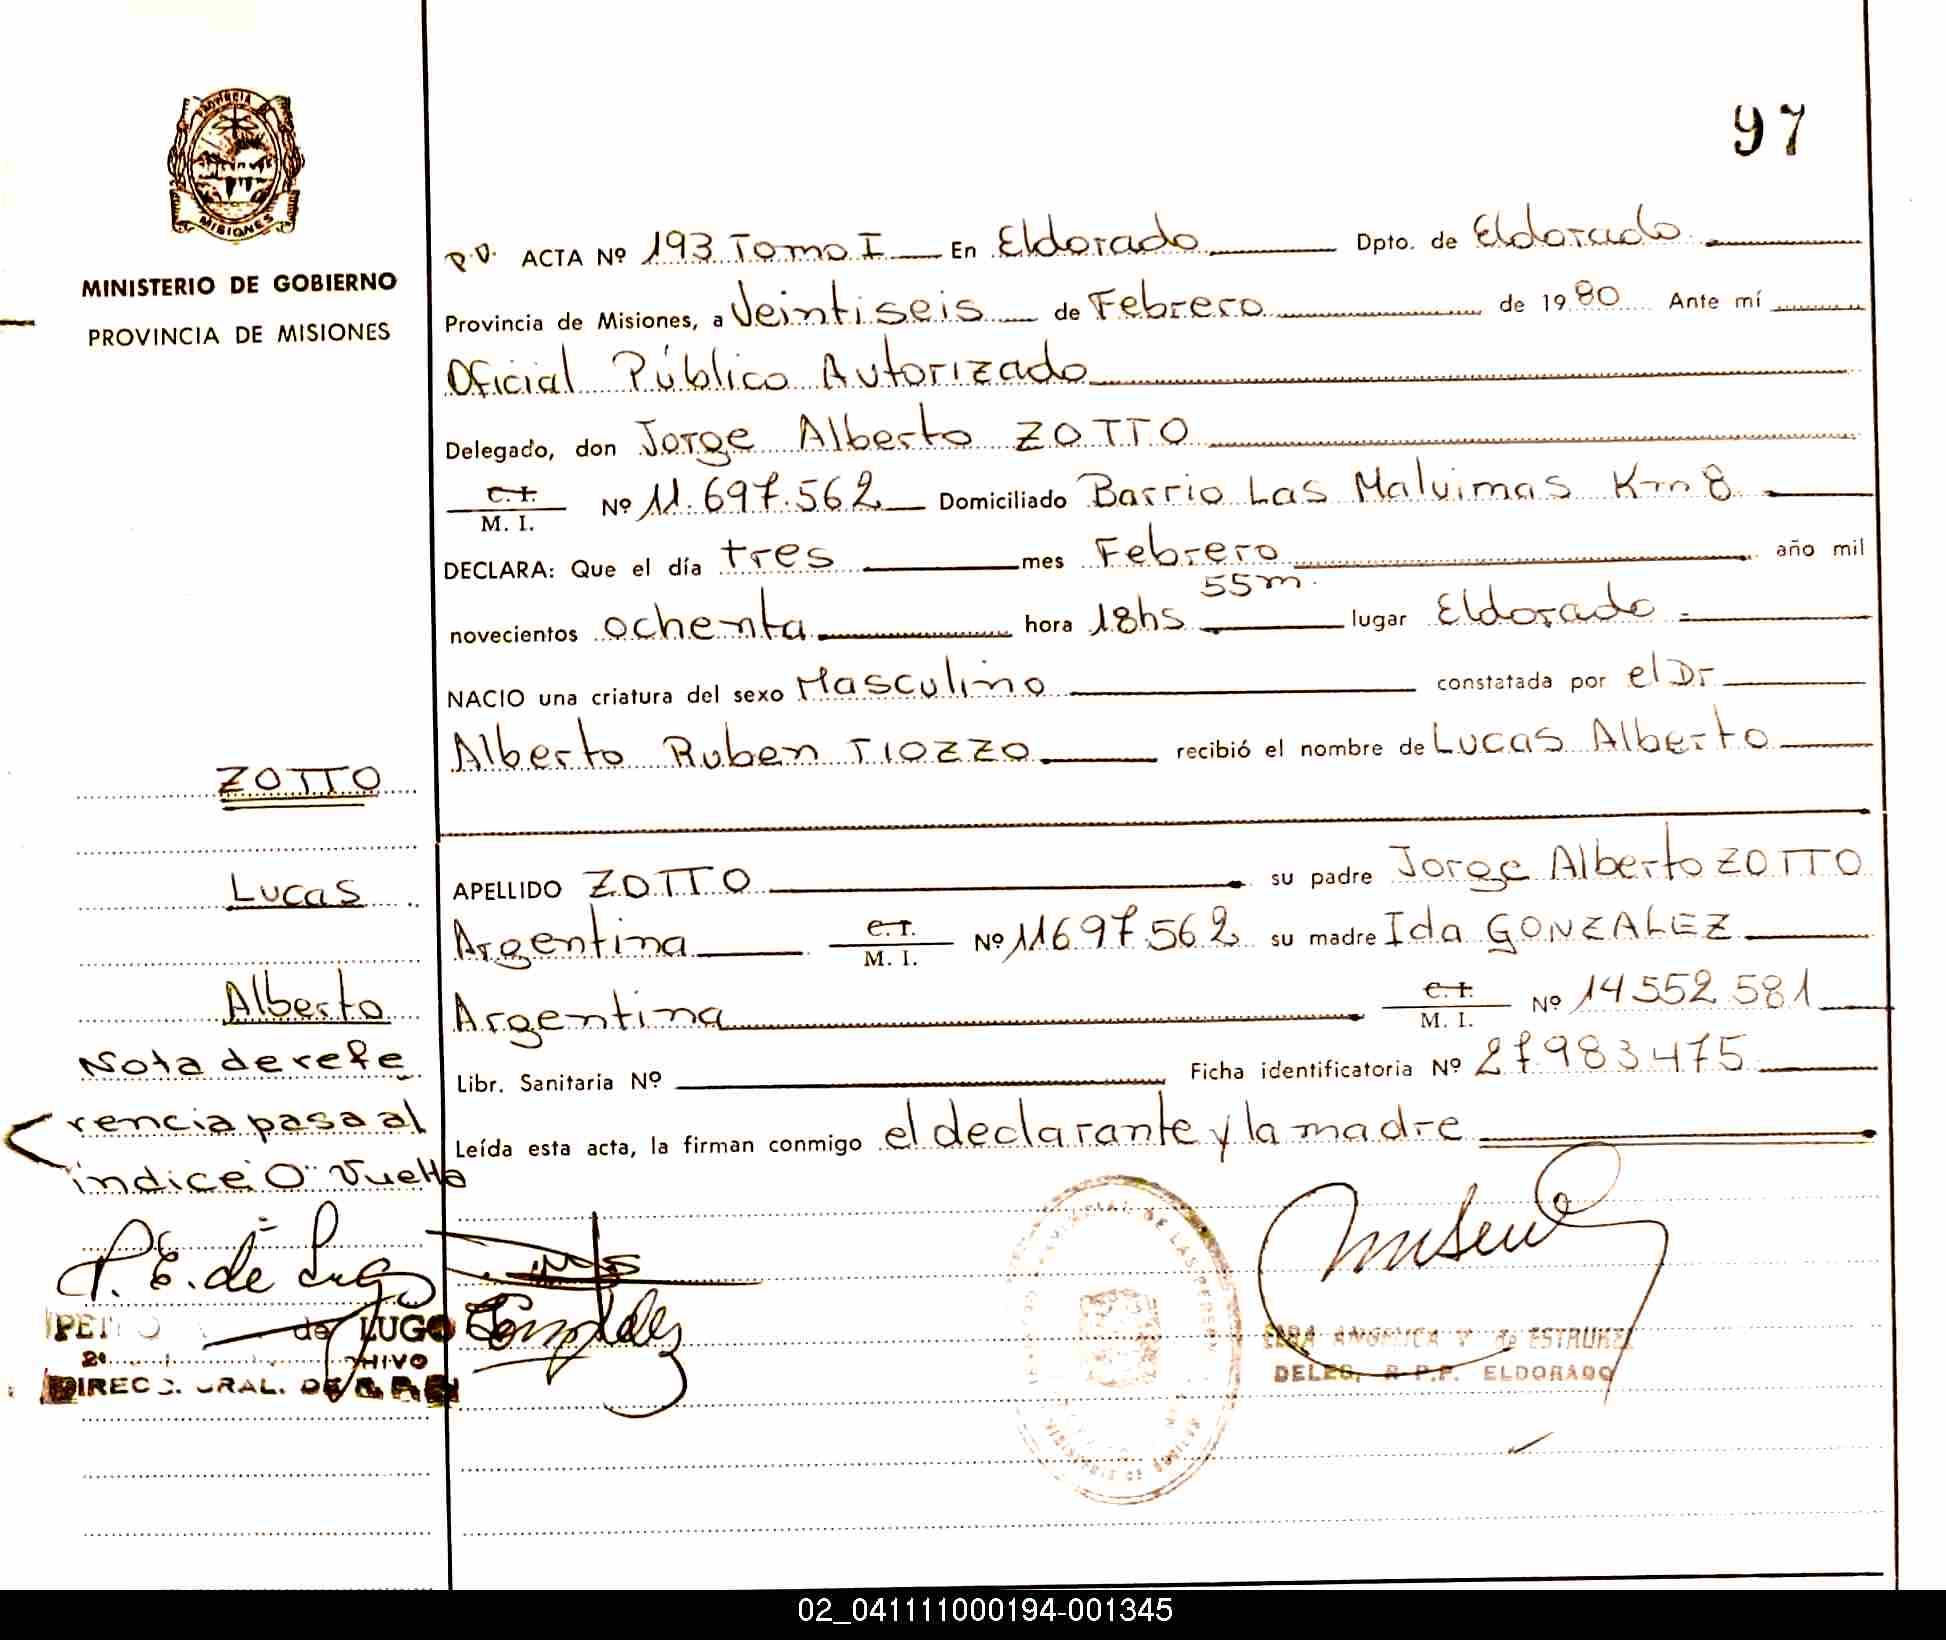 97
PROVINCIA DE
MISIONES
MINISTERIO DE GOBIERNO
PROVINCIA DE MISIONES
P.D. ACTA Nº 193 Tomo I En Eldorado Dpto. de Eldorado
Provincia de Misiones, a Veintiseis de Febrero de 1980 Ante mí
Oficial Público Autorizado
Delegado, don Jorge Alberto ZOTTO
C.I.
M. I. Nº 11.697.562 Domiciliado Barrio Las Malvinas Km 8
DECLARA: Que el día tres mes Febrero año mil
55m.
novecientos ochenta hora 18hs lugar Eldorado
NACIO una criatura del sexo Masculino constatada por el Dr
Alberto Ruben TIOZZO recibió el nombre de Lucas Alberto
APELLIDO ZOTTO su padre Jorge Alberto ZOTTO
Argentina C.I. M. I. Nº 11697.562 su madre Ida GONZALEZ
Argentina C.I. M. I. Nº 14552.581
Libr. Sanitaria Nº Ficha identificatoria Nº 27983475
Leída esta acta, la firman conmigo el declarante y la madre
ZOTTO
Lucas
Alberto
Nota de refe
rencia pasa al
indice "O" Vuelta
P. E. de Lugo
de LUGO
Gonzalez
DE LAS PER
MINISTERIO DE
ANGELICA V. de ESTRUKEL
DELEG. R.P.P. ELDORADO
02_041111000194-001345